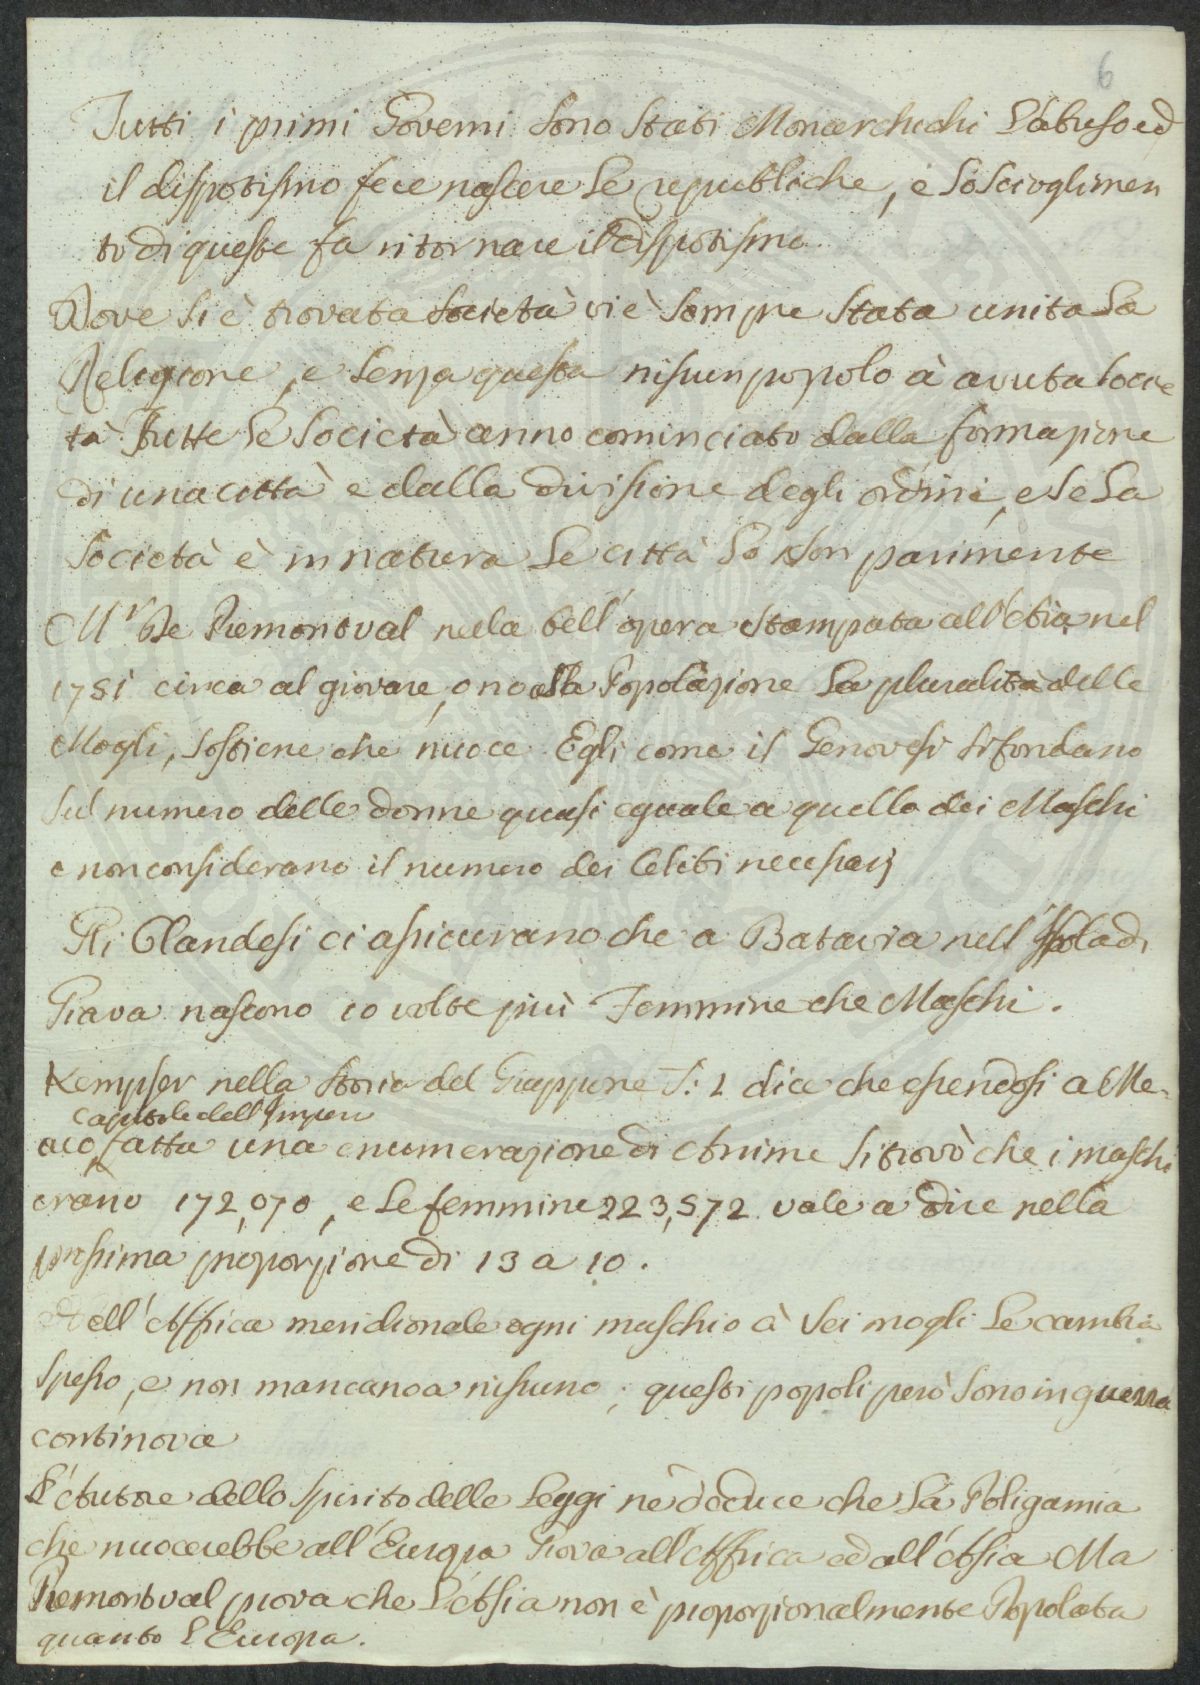 6
Tutti i primi Governi sono stati Monarchichi L'abuso ed
il dispotismo fece nascere le republiche, e lo scioglimen
to di queste fa ritornare il dispotismo.
Dove si è trovata società vi è sempre stata unita la
Religione, e senza questa nisun popolo à avuta socie
tà. Tutte le società anno cominciato dalla formazione
di una città e dalla divisione degli ordini, e se la
società è in natura le città lo son parimente
Mr De Premontval nella bell'opera stampata all'Aia nel
1751 circa al giovare, o no alla Popolazione la pluralità delle
Mogli, sostiene che nuoce. Egli come il Genovesi si fondano
sul numero delle donne quasi eguale a quello dei Maschi
e non considerano il numero dei Celibi necessarj
Gli Olandesi ci assicurano che a Batavia nell'Isola di
Giava nascono 10 volte più Femmine che Maschi.
Kempfer nella storia del Giappone T: 2 dice che essendosi a Me-
capitale dell'Impero
aco, fatta una enumerazione di Anime si trovò che i maschi
erano 172,070, e le femmine 223,572 vale a dire nella
prossima proporzione di 13 a 10.
Nell'Affrica meridionale ogni maschio à sei mogli le cambia
spesso, e non mancano a nisuno; questi popoli però sono in guerra
continova
L'Autore dello spirito delle Leggi nè deduce che la Poligamia
che nuocerebbe all'Europa Giova all'Affrica ed all'Asia Ma
Premontval prova che l'Asia non è proporzionalmente Popolata
quanto l'Europa.